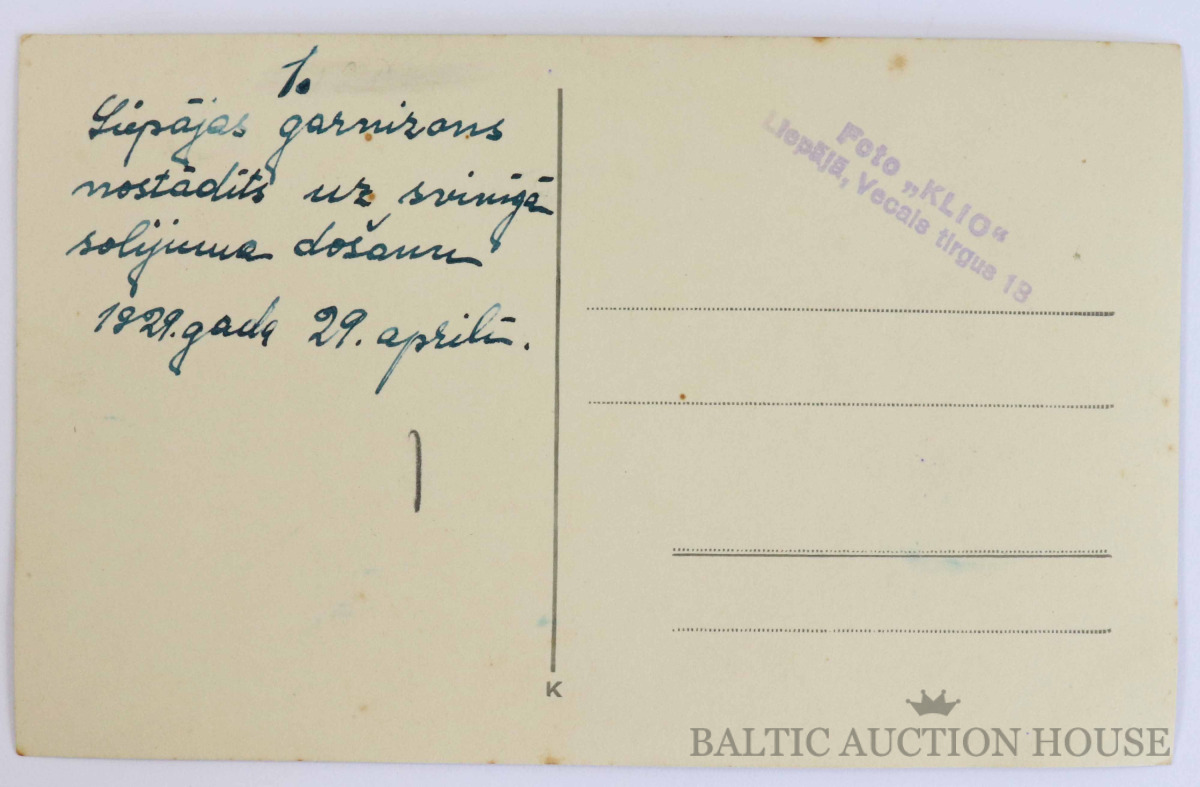 1.
Liepājas garnizons
nostādīts uz svinīgā
solijuma došanu
1929. gada 29. aprilī.
Foto „KLIO“
Liepājā, Vecais tirgus 18
K
BALTIC AUCTION HOUSE